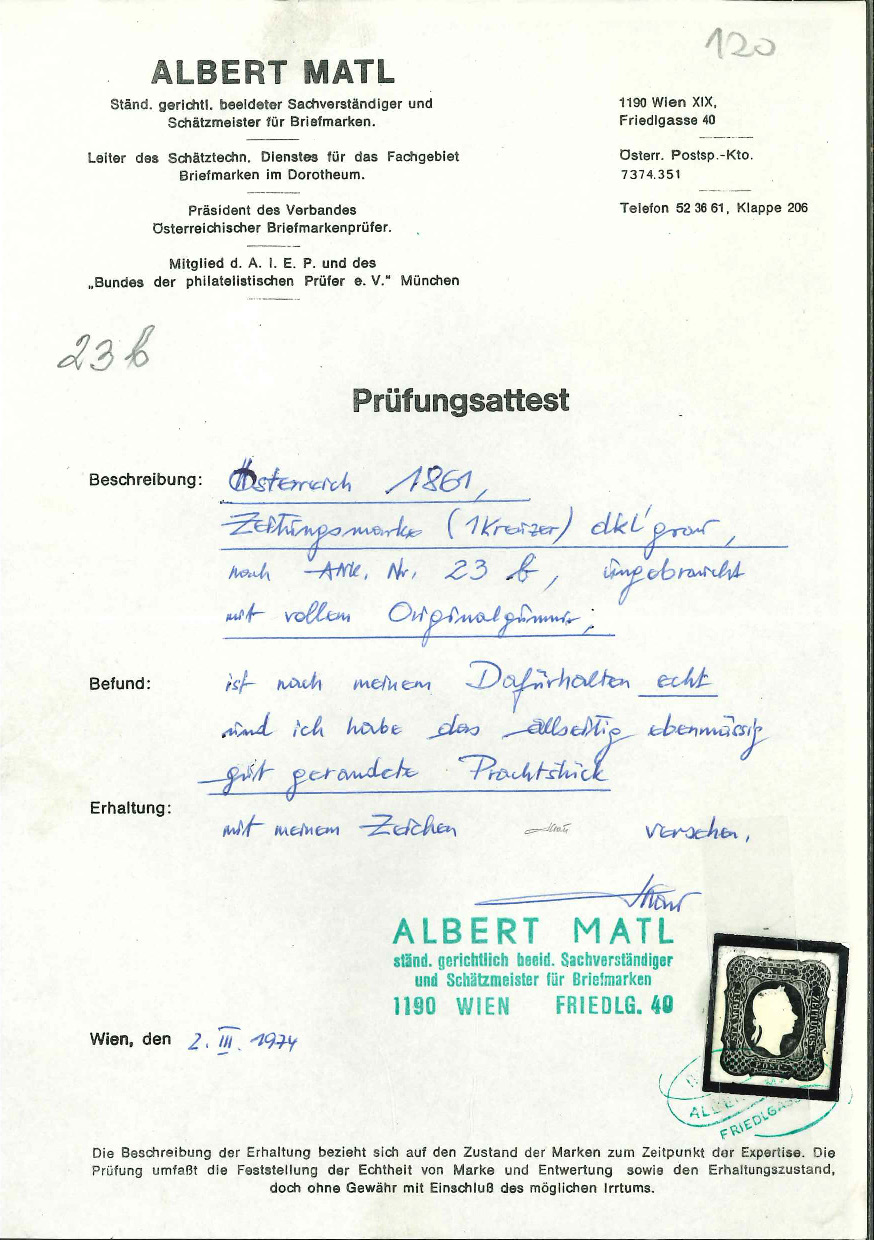 120
ALBERT MATL
Ständ. gerichtl. beeideter Sachverständiger und
Schätzmeister für Briefmarken.
Leiter des Schätztechn. Dienstes für das Fachgebiet
Briefmarken im Dorotheum.
Präsident des Verbandes
Österreichischer Briefmarkenprüfer.
Mitglied d. A. I. E. P. und des
„Bundes der philatelistischen Prüfer e. V." München
1190 Wien XIX,
Friedlgasse 40
Österr. Postsp.-Kto.
7374.351
Telefon 52 36 61, Klappe 206
23 b
Prüfungsattest
Beschreibung: Österreich 1861,
Zeitungsmarke (1 Kreizer) dkl'grau,
nach ANK. Nr. 23 b, ungebraucht
mit vollem Originalgummi;
Befund: ist nach meinem Dafürhalten echt
und ich habe das allseitig ebenmässig
gut gerandete Prachtstück
Erhaltung: mit meinem Zeichen versehen.
ALBERT MATL
ständ. gerichtlich beeid. Sachverständiger
und Schätzmeister für Briefmarken
1190 WIEN FRIEDLG. 40
Wien, den 2. III. 1974
K.K.
ZEITUNGS
POST
STÄMPEL
FRIEDLGASS
Die Beschreibung der Erhaltung bezieht sich auf den Zustand der Marken zum Zeitpunkt der Expertise. Die
Prüfung umfaßt die Feststellung der Echtheit von Marke und Entwertung sowie den Erhaltungszustand,
doch ohne Gewähr mit Einschluß des möglichen Irrtums.